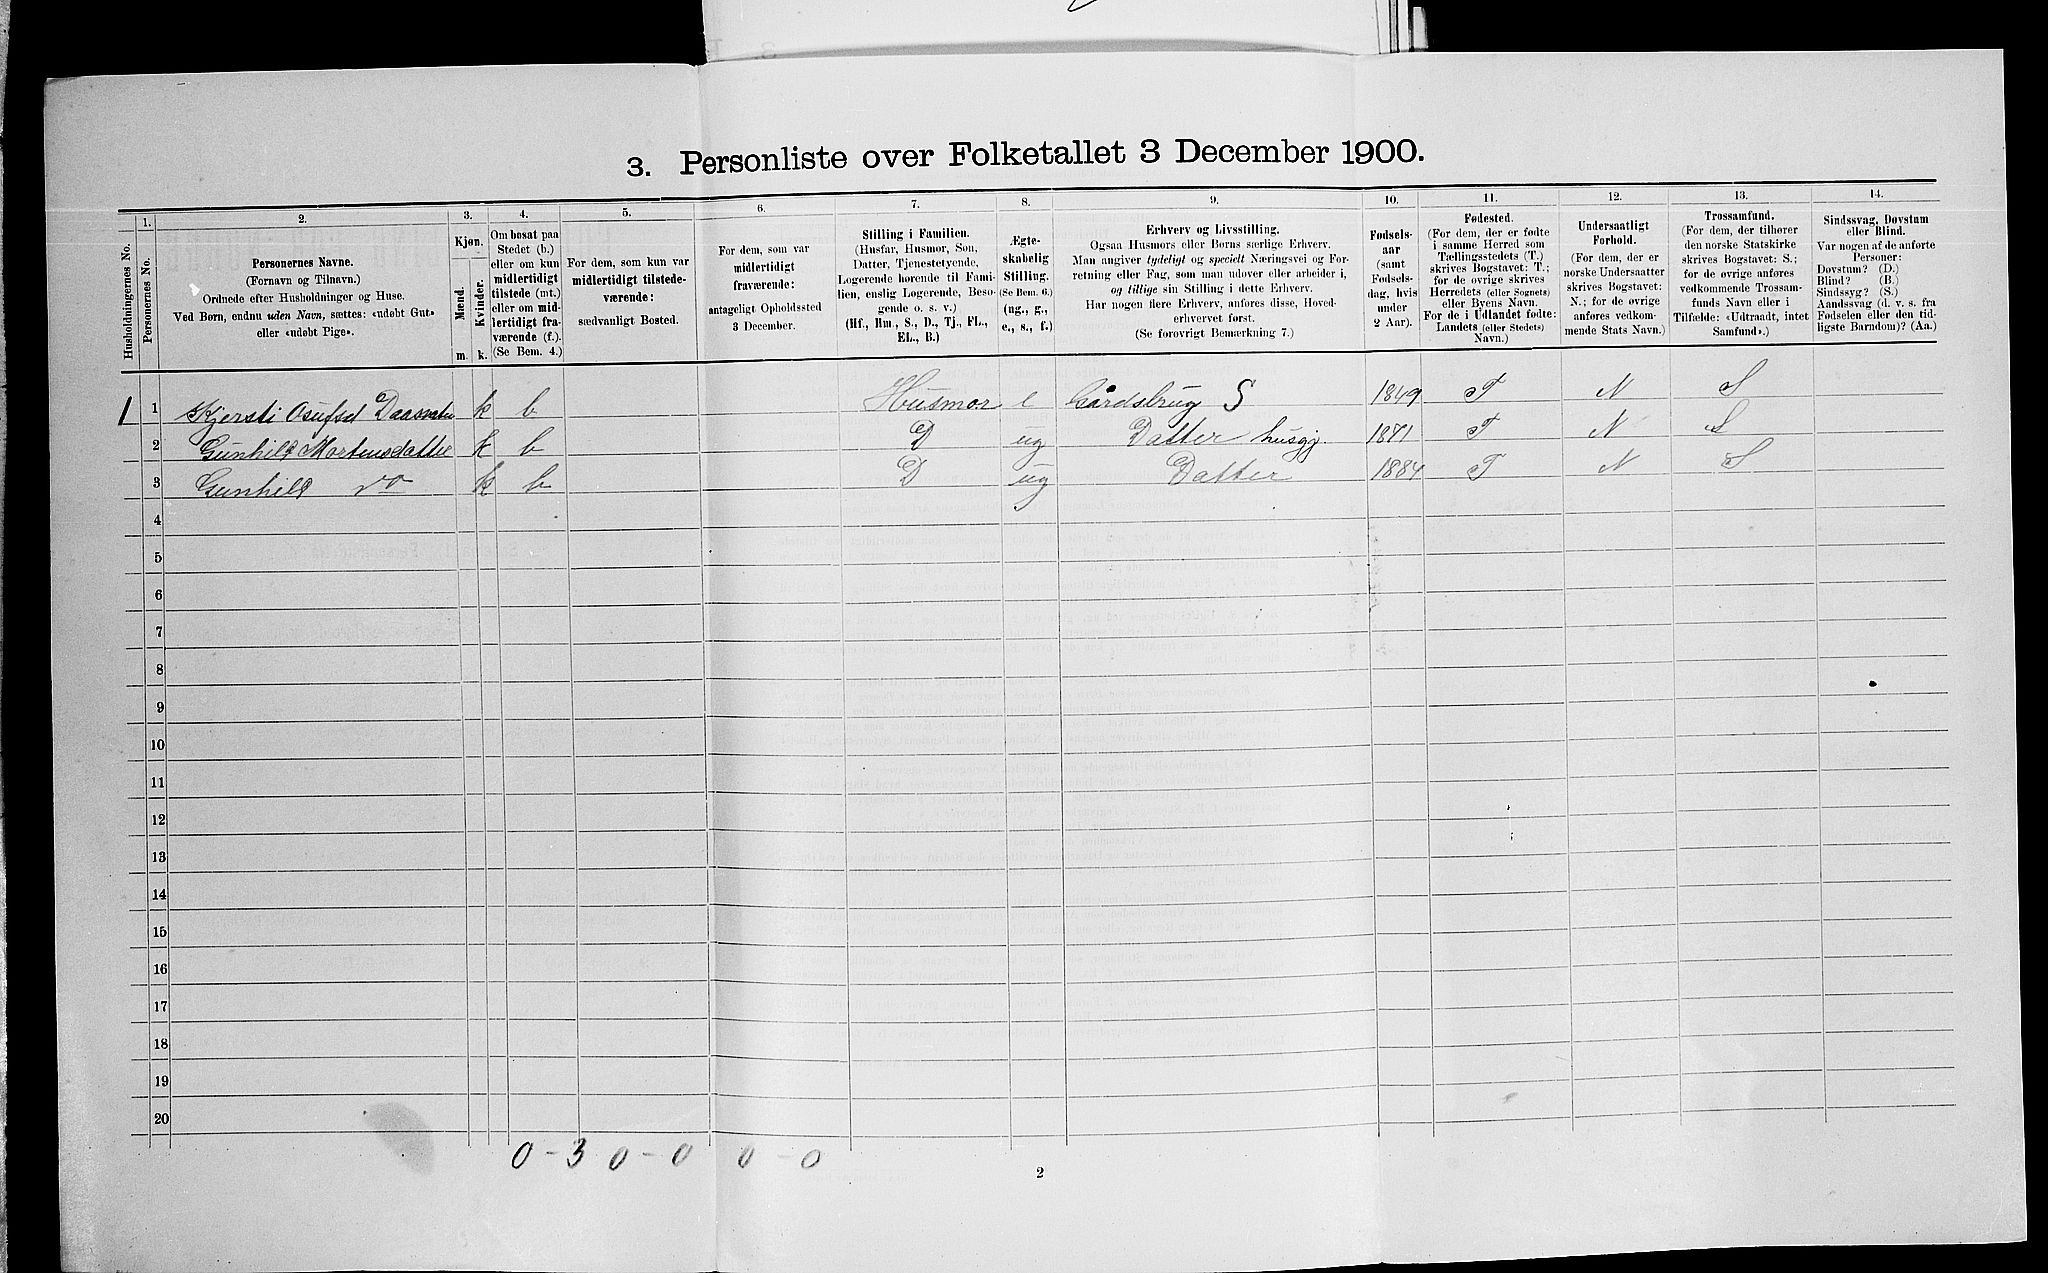 3. Personliste over Folketallet 3 December 1900.
1. 2. 3. 4. 5. 6. 7. 8. 9. 10. 11. 12. 13. 14.
Husholdningernes No.
Personernes No.
Personernes Navne.
(Fornavn og Tilnavn.)
Ordnede efter Husholdninger og Huse.
Ved Børn, endnu uden Navn, sættes: «udøbt Gut»
eller «udøbt Pige».
Kjøn.
Mænd.
Kvinder.
m. k.
Om bosat paa
Stedet (b.)
eller om kun
midlertidigt
tilstede (mt.)
eller om mid-
lertidigt fra-
værende (f.).
(Se Bem. 4.)
For dem, som kun var
midlertidigt tilstede-
værende:
sædvanligt Bosted.
For dem, som var
midlertidigt
fraværende:
antageligt Opholdssted
3 December.
Stilling i Familien.
(Husfar, Husmor, Søn,
Datter, Tjenestetyende,
Logerende hørende til Fami-
lien, enslig Logerende, Beso-
gende o. s. v.)
(Hf., Hm., S., D., Tj., FL.,
EL., B.)
Ægte-
skabelig
Stilling.
(Se Bem. 6.)
(ug., g.,
e., s., f.)
Erhverv og Livsstilling.
Ogsaa Husmors eller Børns særlige Erhverv.
Man angiver tydeligt og specielt Næringsvei og For-
retning eller Fag, som man udøver eller arbeider i,
og tillige sin Stilling i dette Erhverv.
Har nogen flere Erhverv, anføres disse, Hoved-
erhvervet først.
(Se forøvrigt Bemærkning 7.)
Fødsels-
aar
(samt
Fødsels-
dag, hvis
under
2 Aar).
Fødested.
(For dem, der er fødte
i samme Herred som
Tællingsstedets (T.)
skrives Bogstavet: T.;
for de øvrige skrives
Herredets (eller Sognets)
eller Byens Navn.
For de i Udlandet fødte:
Landets (eller Stedets)
Navn.)
Undersaatligt
Forhold.
(For dem, der er
norske Undersaatter
skrives Bogstavet:
N.; for de øvrige
anføres vedkom-
mende Stats Navn.)
Trossamfund.
(For dem, der tilhører
den norske Statskirke
skrives Bogstavet: S.;
for de øvrige anføres
vedkommende Trossam-
funds Navn eller i
Tilfælde: «Udtraadt, intet
Samfund».)
Sindssvag, Døvstum
eller Blind.
Var nogen af de anførte
Personer:
Døvstum? (D.)
Blind? (B.)
Sindssyg? (S.)
Aandssvag (d. v. s. fra
Fødselen eller den tid-
ligste Barndom)? (Aa.)
1 1 Kjersti Osufsd k b Husmor e Gårdsbrug S 1849 T N S
2 Gunhild Mortensdatter k b D ug Datter husgj. 1871 T N S
3 Gunhild do k b D ug Datter 1884 T N S
4
5
6
7
8
9
10
11
12
13
14
15
16
17
18
19
20
0 - 3 0 - 0 0 - 0
2